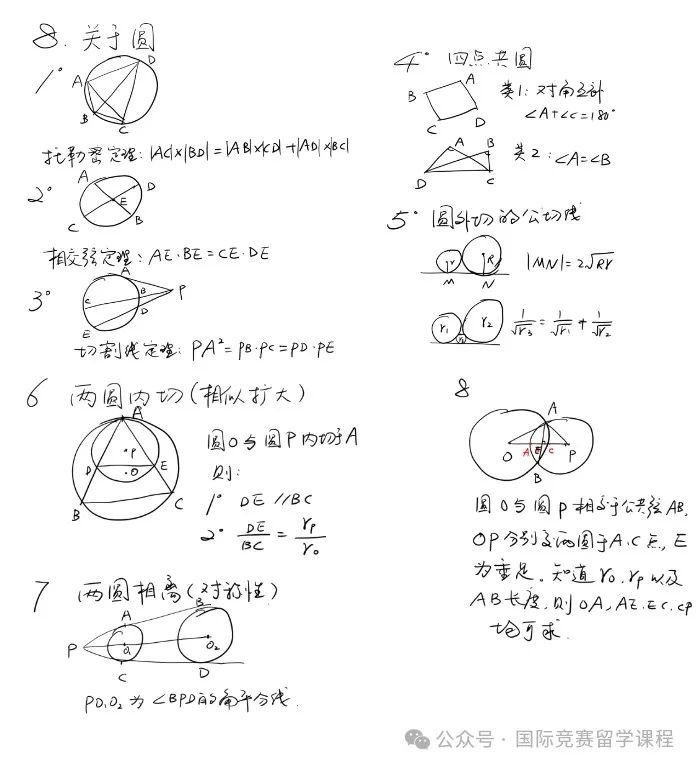 8. 关于圆
1°
A
D
B
C
托勒密定理: |AC|×|BD| = |AB|×|CD| + |AD|×|BC|
2°
A
D
E
C
B
相交弦定理: AE·BE = CE·DE
3°
A
B
P
C
D
E
切割线定理: PA² = PB·PC = PD·PE
4° 四点共圆
A
B
C
D
类1: 对角互补
∠A+∠C=180°
A
B
D
C
类2: ∠A=∠B
5° 圆外切的公切线
r
R
M
N
|MN| = 2√Rr
r₁
r₂
r₃
1/√r₃ = 1/√r₁ + 1/√r₂
6 两圆内切(相似扩大)
A
P
D
O
E
B
C
圆O与圆P内切于A
则:
1° DE // BC
2° DE/BC = rₚ/r₀
7 两圆相离(对称性)
A
B
P
O₁
O₂
C
D
PO₁O₂为∠BPD的角平分线.
8
A
O
A
E
C
P
B
圆O与圆P相交于公共弦AB,
OP分别交两圆于A.C点, E
为垂足. 知道r₀.rₚ以及
AB长度, 则OA, AE. EC. CP
均可求.
公众号·国际竞赛留学课程